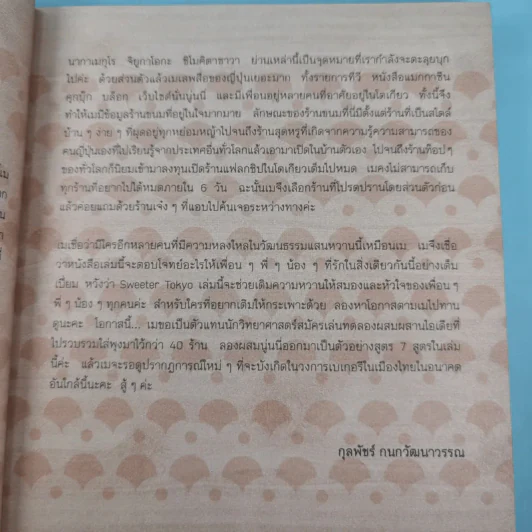 นากาเมกุโร จิยูกาโอกะ ชิโมคิตาซาวา ย่านเหล่านี้เป็นจุดหมายที่เรากำลังจะตะลุยบุก
ไปค่ะ ด้วยส่วนตัวแล้วเมเสพสื่อของญี่ปุ่นเยอะมาก ทั้งรายการทีวี หนังสือแมกกาซีน
คุกบุ๊ก บล็อก เว็บไซต์นั่นนู่นนี่ และมีเพื่อนอยู่หลายคนที่อาศัยอยู่ในโตเกียว ทั้งนี้จึง
ทำให้เมมีข้อมูลร้านขนมที่อยู่ในใจมากมาย ลักษณะของร้านขนมที่นี่มีตั้งแต่ร้านที่เป็นสไตล์
บ้าน ๆ ง่าย ๆ ที่ผุดอยู่ทุกหย่อมหญ้าไปจนถึงร้านสุดหรูที่เกิดจากความรู้ความสามารถของ
คนญี่ปุ่นเองที่ไปเรียนรู้จากประเทศอื่นทั่วโลกแล้วเอามาเปิดในบ้านตัวเอง ไปจนถึงร้านท็อปๆ
ของทั่วโลกก็นิยมเข้ามาลงทุนเปิดร้านแฟลกชิปในโตเกียวเต็มไปหมด เมคงไม่สามารถเก็บ
ทุกร้านที่อยากไปได้หมดภายใน 6 วัน ฉะนั้นเมจึงเลือกร้านที่โปรดปรานโดยส่วนตัวก่อน
แล้วค่อยแถมด้วยร้านเจ๋ง ๆ ที่แอบไปค้นเจอระหว่างทางค่ะ
เมเชื่อว่ามีใครอีกหลายคนที่มีความหลงใหลในวัฒนธรรมแสนหวานนี้เหมือนเม เมจึงเชื่อ
ว่าหนังสือเล่มนี้จะตอบโจทย์อะไรให้เพื่อน ๆ พี่ ๆ น้อง ๆ ที่รักในสิ่งเดียวกันนี้อย่างเต็ม
เปี่ยม หวังว่า Sweeter Tokyo เล่มนี้จะช่วยเติมความหวานให้สมองและหัวใจของเพื่อน ๆ
พี่ ๆ น้อง ๆ ทุกคนค่ะ สำหรับใครที่อยากเติมให้กระเพาะด้วย ลองหาโอกาสตามเมไปทาน
ดูนะคะ โอกาสนี้... เมขอเป็นตัวแทนนักวิทยาศาสตร์สมัครเล่นทดลองผสมผสานไอเดียที่
ไปรวบรวมใส่พุงมาไว้กว่า 40 ร้าน ลองผสมนู่นนี่ออกมาเป็นตัวอย่างสูตร 7 สูตรในเล่ม
นี้ค่ะ แล้วเมจะรอดูปรากฏการณ์ใหม่ ๆ ที่จะบังเกิดในวงการเบเกอรีในเมืองไทยในอนาคต
อันใกล้นี้นะคะ สู้ ๆ ค่ะ
กุลพัชร์ กนกวัฒนาวรรณ